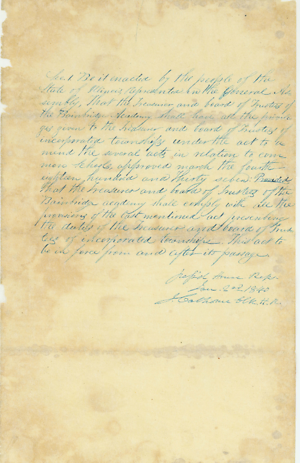 Sec 1 Be it enacted by the people of the
State of Illinois Represented in the General As
sembly, That the Treasurer and board of Trustees
of the Bainbridge Academy shall have all the privile
ges given to the Treasurer and board of Trustees of
incorporated townships under the act to a
mend the several acts, in relation to com
mon schools, approved march the fourth
eighteen hundred and thirty seven Provided
That the Treasurer and board of Trustees of the
Bainbridge academy shall comply with all the
provisions of the last mentioned act prescribing
the duties of the Treasurer and board of Trus
tees of incorporated townships. This act to
be in force from and after its passage
House Reps
Jan 1840
J Calhoun Clk H.R.